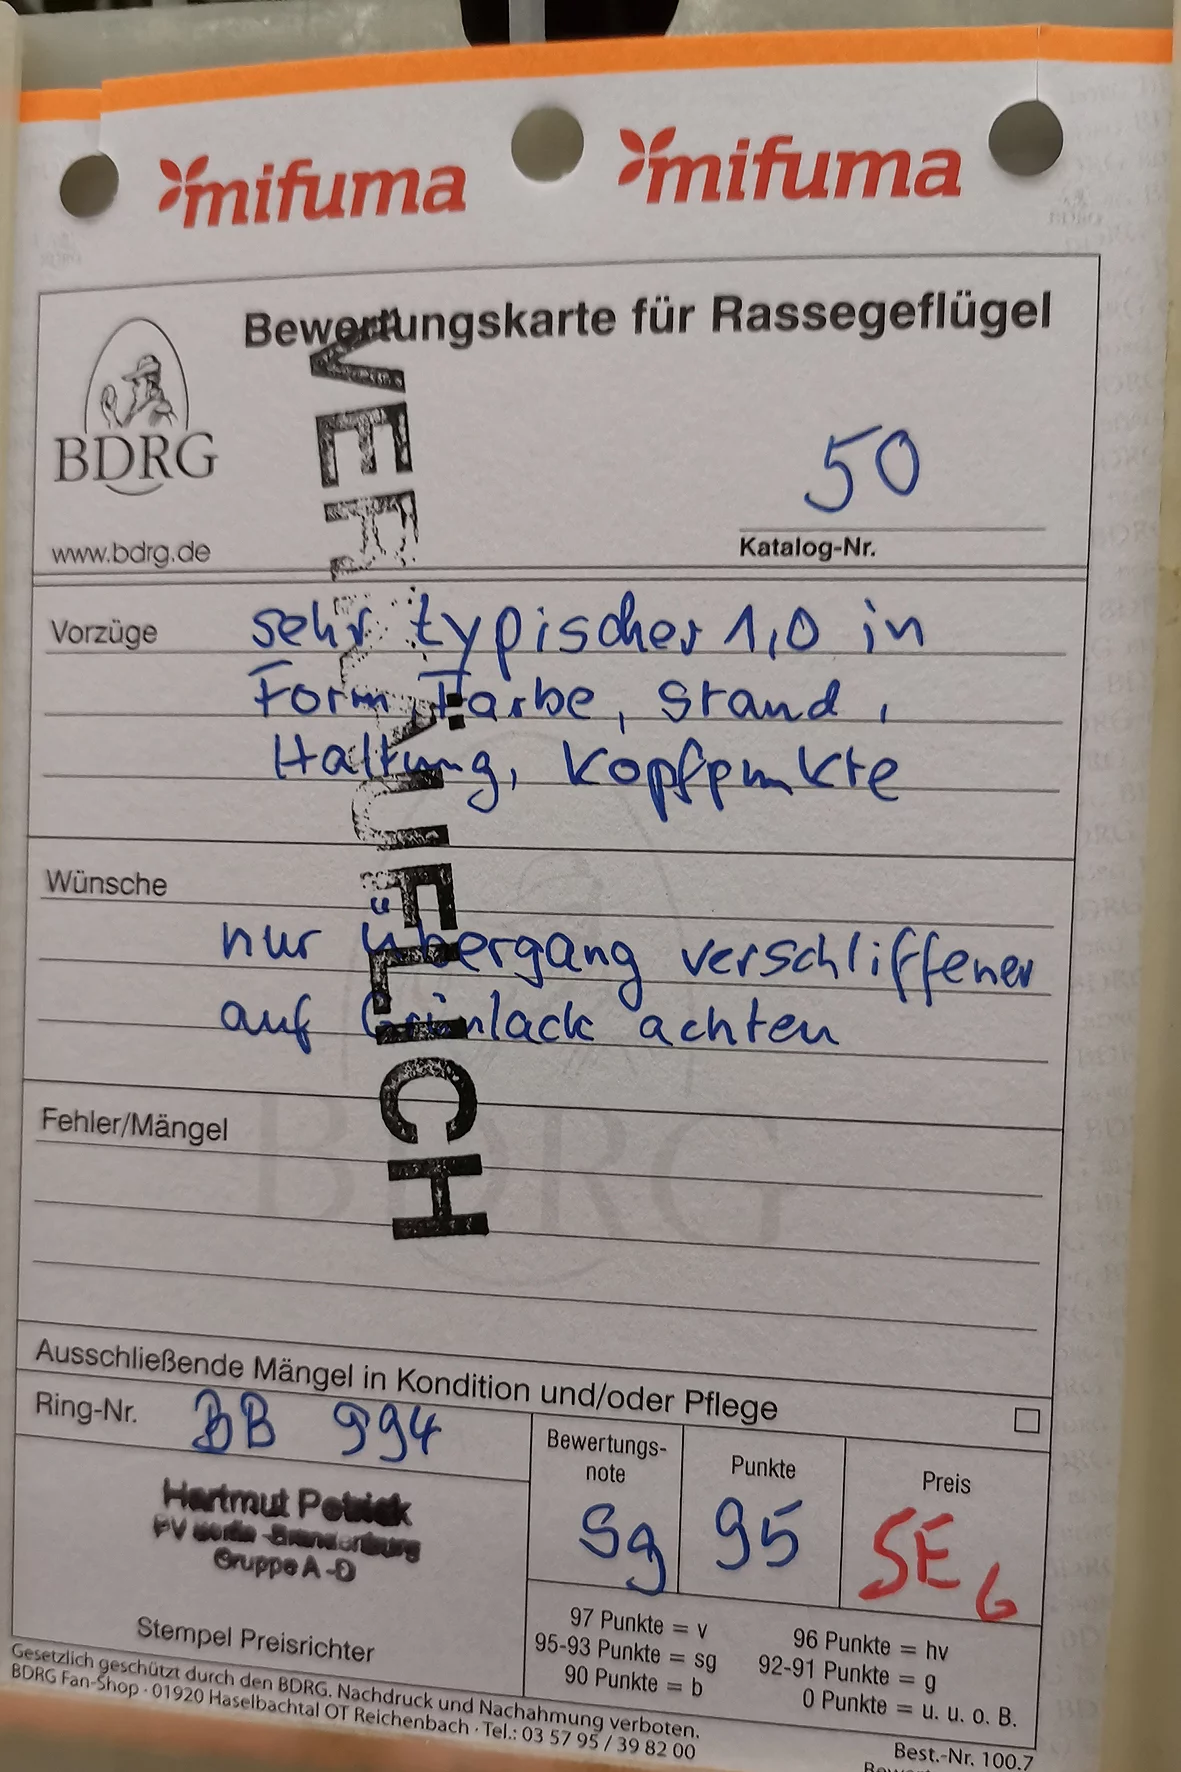 mifuma mifuma
Bewertungskarte für Rassegeflügel
BDRG
www.bdrg.de
50
Katalog-Nr.
VERKÄUFLICH
Vorzüge sehr typischer 1,0 in
Form, Farbe, Stand,
Haltung, Kopfpunkte
Wünsche
nur Übergang verschliffener
auf Grünlack achten
Fehler/Mängel
BDRG
Ausschließende Mängel in Kondition und/oder Pflege
Ring-Nr. BB 994
Bewertungs-
note
Punkte
Preis
Sg 95 SE 6
Hartmut Petrick
PV Berlin-Brandenburg
Gruppe A-D
Stempel Preisrichter
97 Punkte = v 96 Punkte = hv
95-93 Punkte = sg 92-91 Punkte = g
90 Punkte = b 0 Punkte = u. u. o. B.
Gesetzlich geschützt durch den BDRG. Nachdruck und Nachahmung verboten.
BDRG Fan-Shop · 01920 Haselbachtal OT Reichenbach · Tel.: 03 57 95 / 39 82 00
Best.-Nr. 100.7